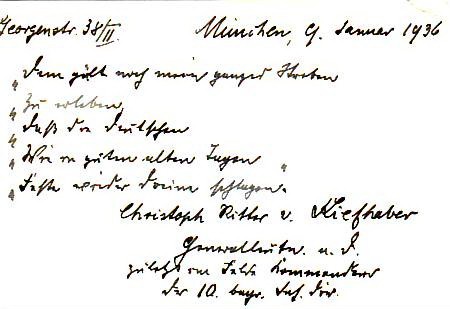 Georgenstr. 38/II. München, 9. Januar 1936
„Dem gilt noch mein ganzes Streben
„Zu erleben,
„Daß die Deutschen
„Wie in guten alten Tagen
„Feste wieder drein schlagen."
Christoph Ritter v. Kiefhaber
Generalleutn. a. D.
zuletzt im Felde Kommandeur
der 10. bayr. Inf. Div.